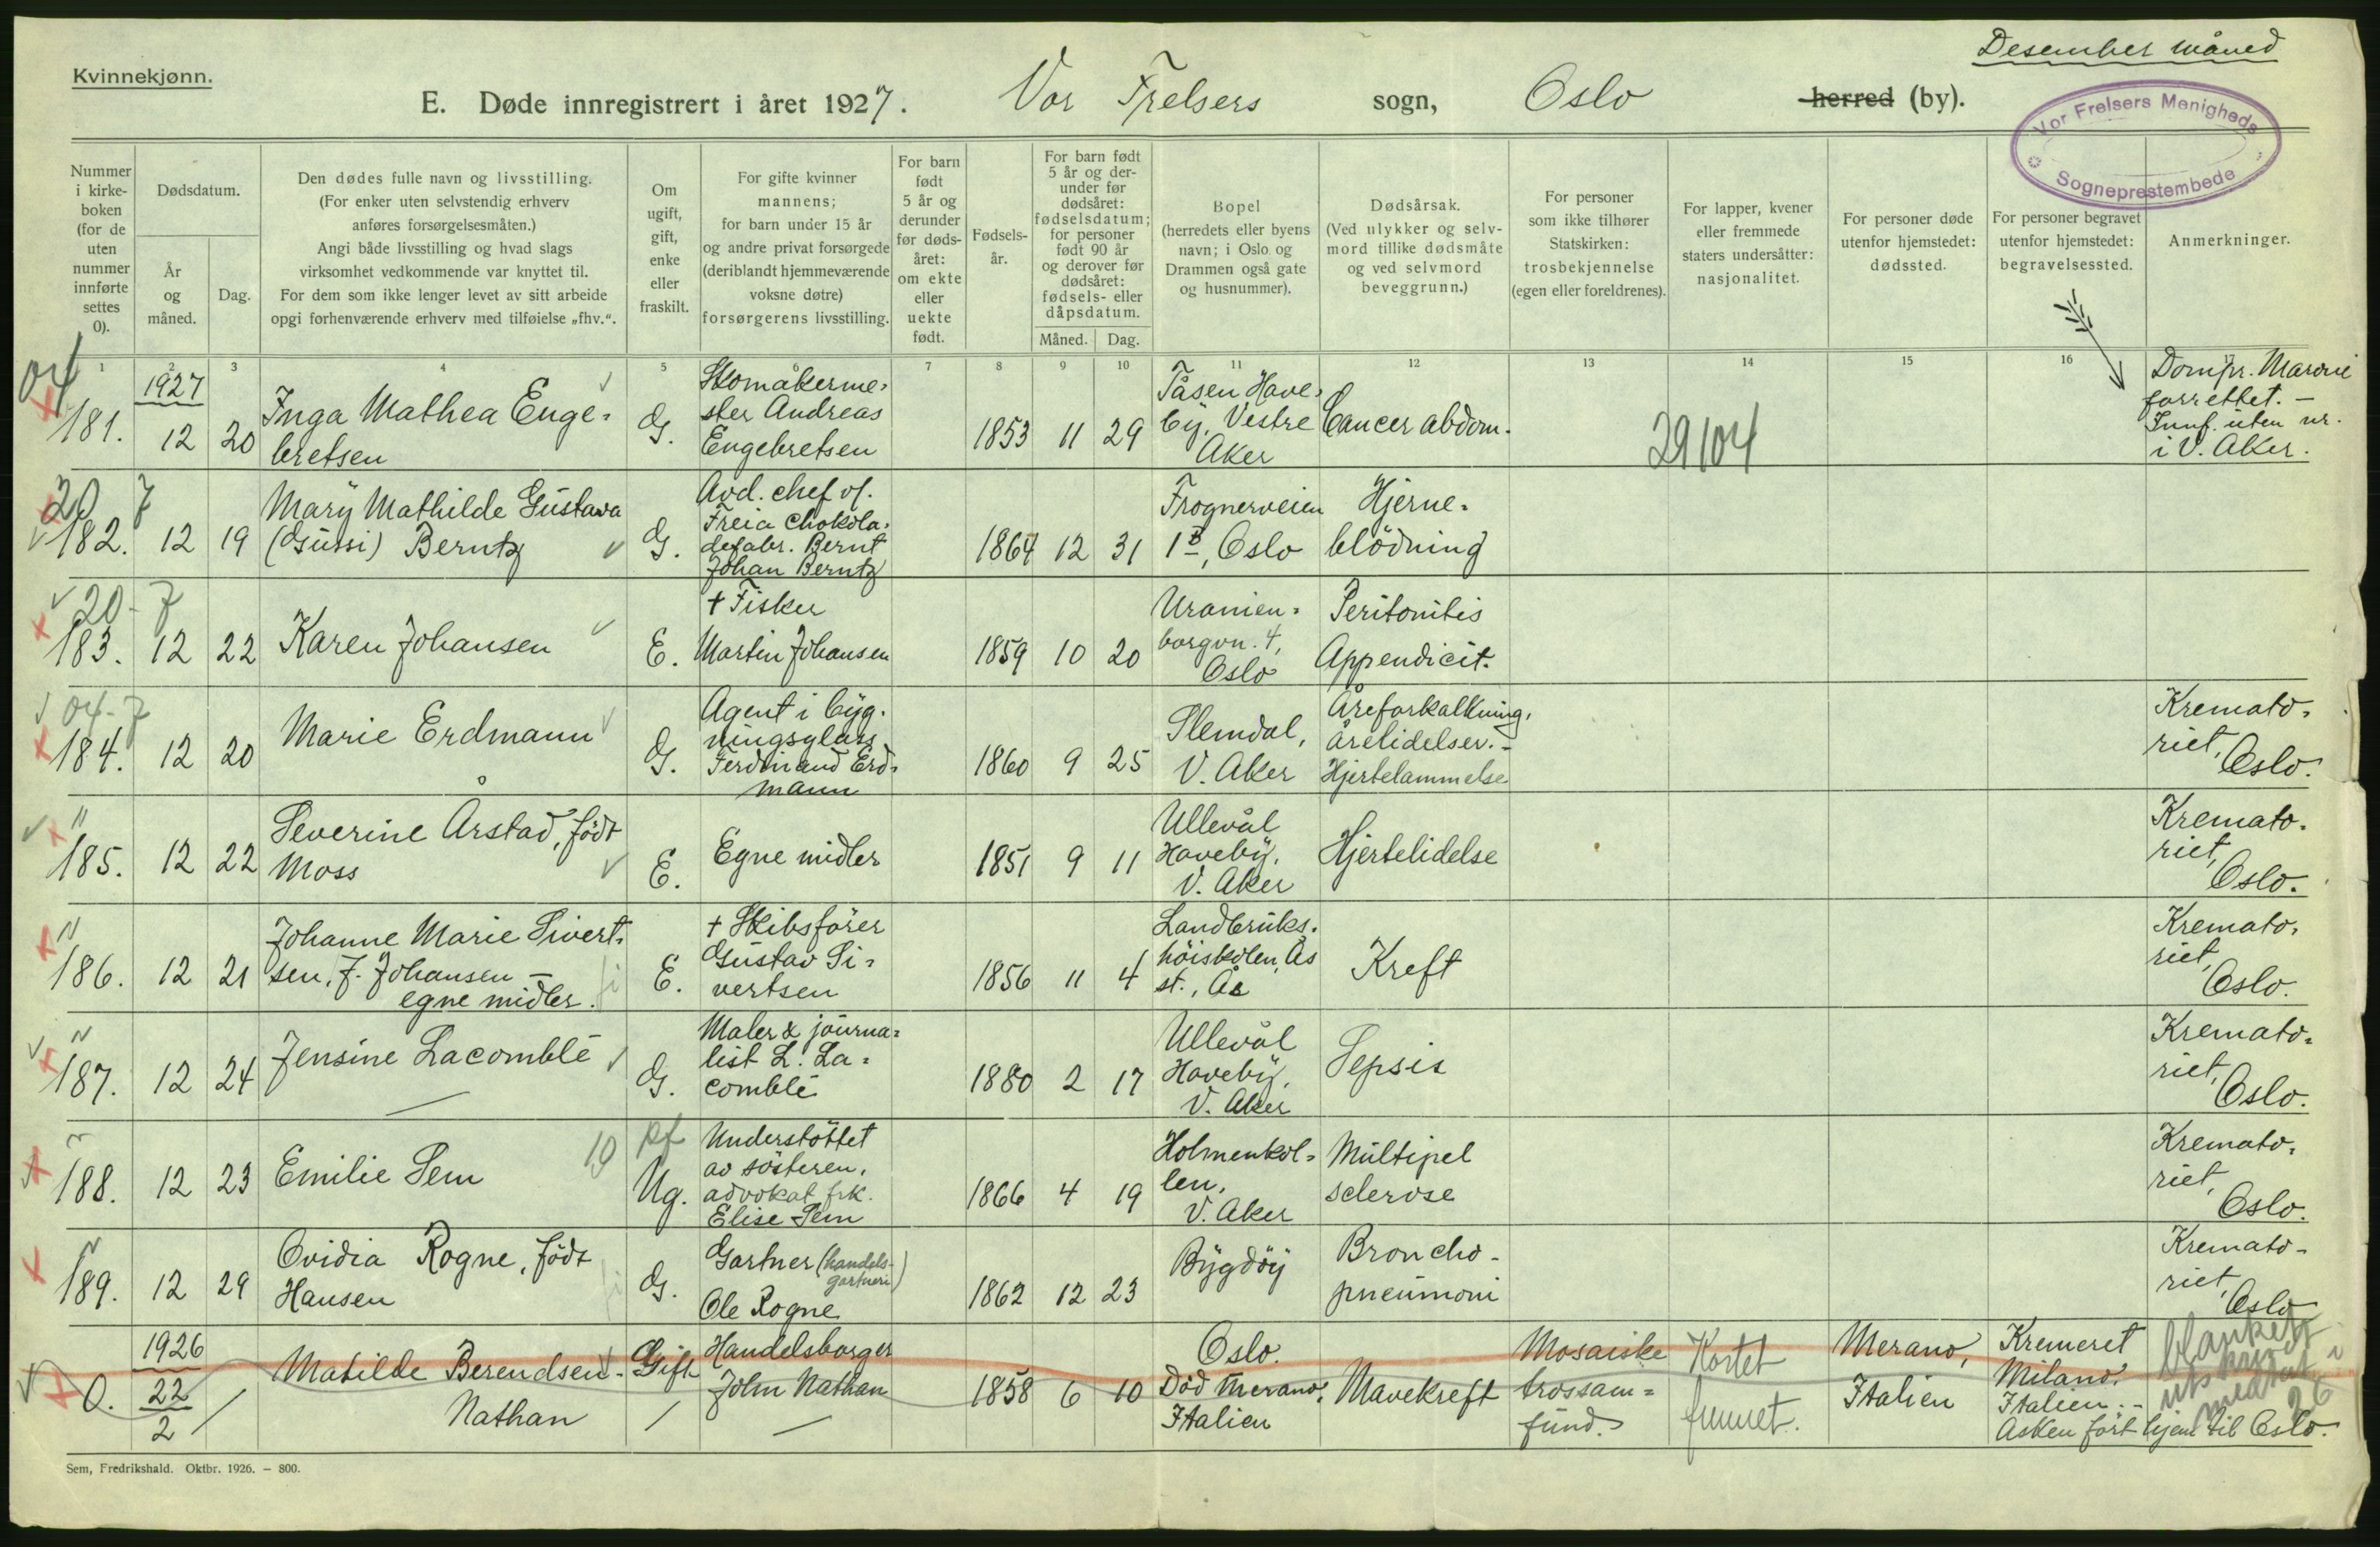 Desember måned
Kvinnekjønn.
E. Døde innregistrert i året 1927. Vor Frelsers sogn, Oslo herred (by).
Vor Frelsers Menigheds
Sogneprestembede
Nummer i kirkeboken (for de uten nummer innførte settes 0).
Dødsdatum.
År og måned.
Dag.
Den dødes fulle navn og livsstilling.
(For enker uten selvstendig erhverv
anføres forsørgelsesmåten.)
Angi både livsstilling og hvad slags
virksomhet vedkommende var knyttet til.
For dem som ikke lenger levet av sitt arbeide
opgi forhenværende erhverv med tilføielse „fhv.“.
Om ugift, gift, enke eller fraskilt.
For gifte kvinner
mannens;
for barn under 15 år
og andre privat forsørgede
(deriblandt hjemmeværende
voksne døtre)
forsørgerens livsstilling.
For barn født 5 år og derunder før dødsåret: om ekte eller uekte født.
Fødselsår.
For barn født 5 år og derunder før dødsåret: fødselsdatum; for personer født 90 år og derover før dødsåret: fødsels- eller dåpsdatum.
Måned. Dag.
Bopel
(herredets eller byens
navn; i Oslo og
Drammen også gate
og husnummer).
Dødsårsak.
(Ved ulykker og selv-
mord tillike dødsmåte
og ved selvmord
beveggrunn.)
For personer
som ikke tilhører
Statskirken:
trosbekjennelse
(egen eller foreldrenes).
For lapper, kvener
eller fremmede
staters undersåtter:
nasjonalitet.
For personer døde
utenfor hjemstedet:
dødssted.
For personer begravet
utenfor hjemstedet:
begravelsessted.
Anmerkninger.
1 2 3 4 5 6 7 8 9 10 11 12 13 14 15 16 17
04
1927
181. 12 20 Inga Mathea Enge-
bretsen
G.
Skomakerme-
ster Andreas
Engebretsen
1853 11 29
Tåsen Have-
by, Vestre
Aker
Cancer abdom.
29104
Dompr. Maroni
forrettet. -
Innf. uten nr.
i V. Aker.
20 7
182. 12 19 Mary Mathilde Gustava
(Gussi) Berntz
G.
Avd. chef v.
Freia chokola-
defabr. Bernt
Johan Berntz
1864 12 31
Frognerveien
1B, Oslo
Hjerne-
blödning
20-7
183. 12 22 Karen Johansen
E.
+ Fisker
Martin Johansen
1859 10 20
Uranien-
borgvn. 4,
Oslo
Peritonitis
Appendicit.
04-7
184. 12 20 Marie Erdmann
G.
Agent i byg-
ningsglass
Ferdinand Erd-
mann
1860 9 25
Slemdal,
V. Aker
Åreforkalkning,
årelidelser. -
Hjertelammelse
Kremato-
riet,
Oslo.
"
185. 12 22 Severine Årstad, född
Moss
E.
Egne midler
1851 9 11
Ullevål
Haveby,
V. Aker
Hjertelidelse
Kremato-
riet,
Oslo.
"
186. 12 21 Johanne Marie Sivert-
sen, f. Johansen -
egne midler.
E.
+ Skibsfører
Gustav Si-
vertsen
1856 11 4
Landbruks-
höiskolen, Ås
st., Ås
Kreft
Kremato-
riet,
Oslo.
"
187. 12 24 Jensine Lacomblé
G.
Maler & journa-
list L. La-
comblé
1880 2 17
Ullevål
Haveby,
V. Aker
Sepsis
Kremato-
riet,
Oslo.
"
188. 12 23 Emilie Sem
19 pf
Ug.
Understöttet
av søsteren,
advokat frk.
Elise Sem
1866 4 19
Holmenkol-
len,
V. Aker
Multipel
sclerose
Kremato-
riet,
Oslo.
"
189. 12 29 Ovidia Rogne, född
Hansen
G.
Gartner (handels-
gartneri)
Ole Rogne
1862 12 23
Bygdöy
Broncho-
pneumoni
Kremato-
riet,
Oslo
1926
0. 22
2
Matilde Berendsen-
Nathan
Gift
Handelsborger
John Nathan
1858 6 10
Oslo.
Död Merano,
Italien
Mavekreft
Mosaiske
trossam-
fund.
Kortet
funnet.
Merano,
Italien
Kremeret
Milano,
Italien. -
Asken fört hjem til Oslo.
blankett
utskrevd
medtatt i
26
Sem, Fredrikshald. Oktbr. 1926. — 800.